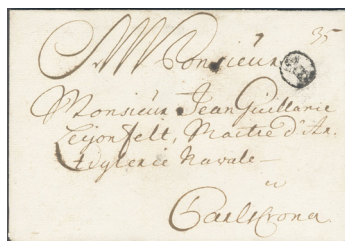 Monsieur 35
Monsieur Jean Guillaume
Leyonfelt, Maitre d'Ar,
tyllerie Navale —
à
Carlscrona